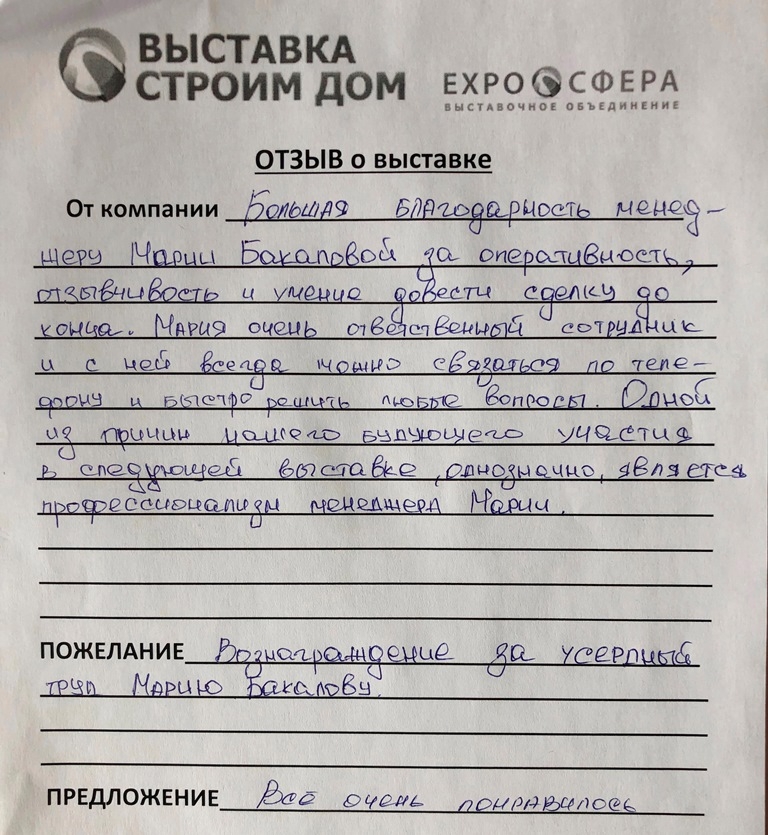 ВЫСТАВКА
СТРОИМ ДОМ
EXPO СФЕРА
ВЫСТАВОЧНОЕ ОБЪЕДИНЕНИЕ
ОТЗЫВ о выставке
От компании Большая благодарность менед-
жеру Марии Бакаловой за оперативность,
отзывчивость и умение довести сделку до
конца. Мария очень ответственный сотрудник
и с ней всегда можно связаться по теле-
фону и быстро решить любые вопросы. Одной
из причин нашего будующего участия
в следующей выставке, однозначно, является
профессионализм менеджера Марии.
ПОЖЕЛАНИЕ Вознаграждение за усердный
труд Марию Бакалову.
ПРЕДЛОЖЕНИЕ Всё очень понравилось